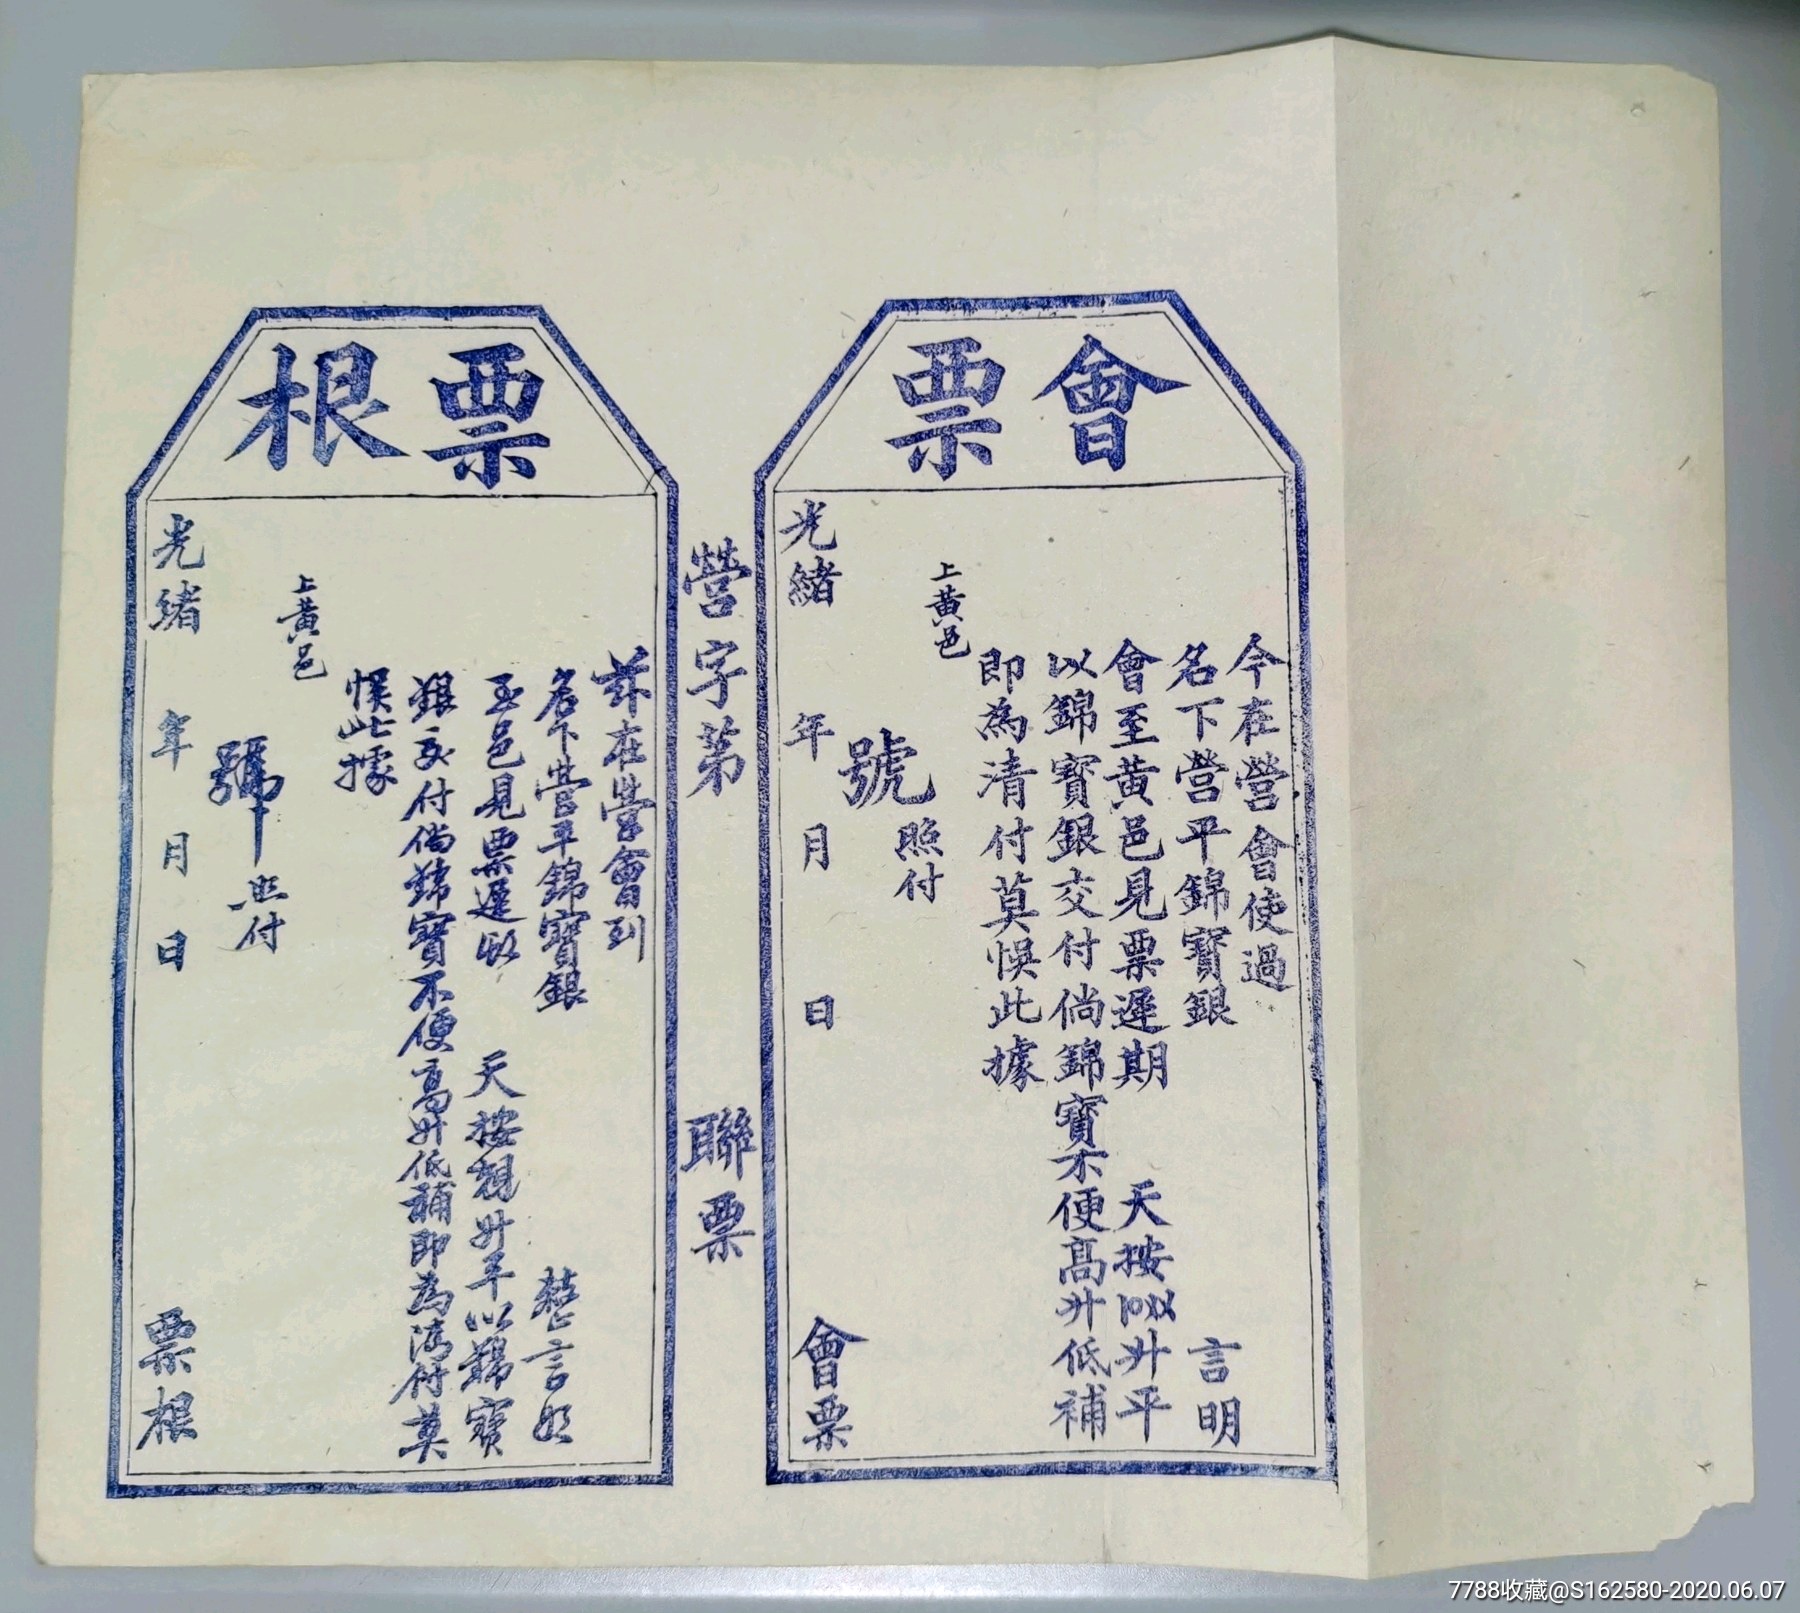 會票
今在營會使過
名下營平錦寳銀 言明
會至黄邑見票遲期 天按 升平
以錦寳銀交付倘錦寳不便髙升低補
即為清付莫悞此據
上黄邑
號 照付
光緒 年 月 日 會票
營字第 聯票
票根
茲在營會到
名下營平錦寳銀 言明
至邑見票遲 天按 升平以錦寳
銀交付倘錦寳不便髙升低補即為清付莫
悞此據
上黄邑
號 照付
光緒 年 月 日 票根
7788收藏@S162580-2020.06.07